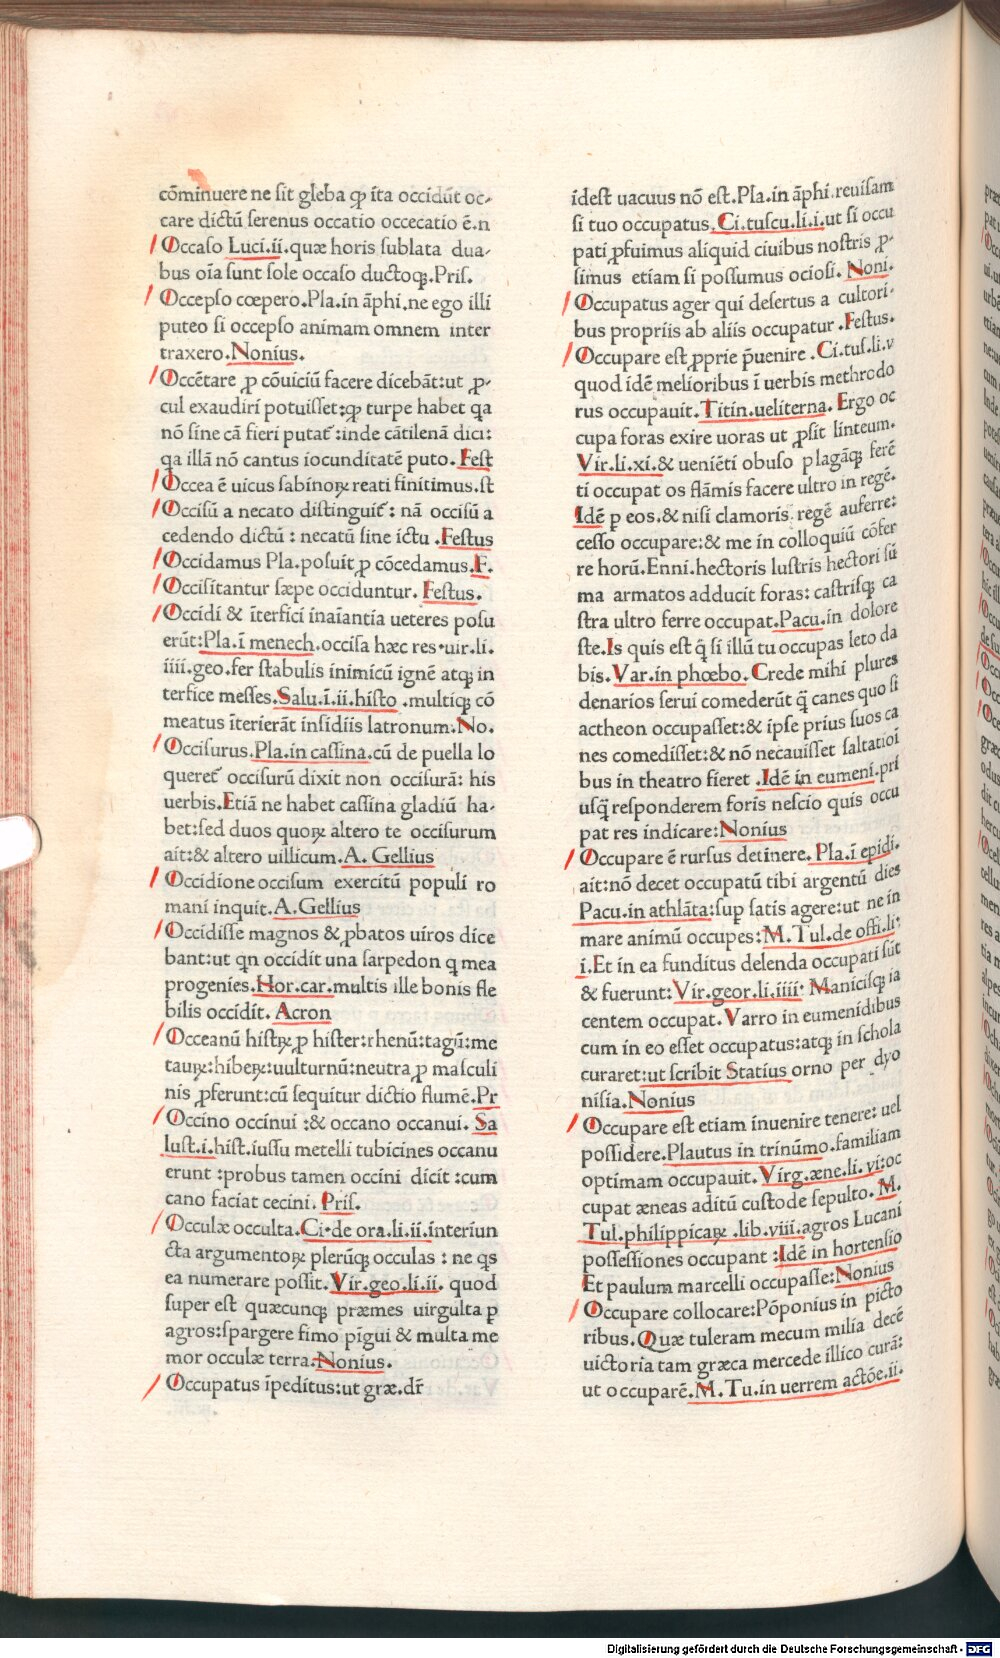 cōminuere ne sit gleba ꝙ ita occidūt oc-
care dictū serenus occatio occecatio ē.n
Occaso Luci.ii.quæ horis sublata dua-
bus oīa sunt sole occaso ductoqꝫ.Pris.
Occepso cœpero.Pla.in āphi.ne ego illi
puteo si occepso animam omnem inter
traxero.Nonius.
Occētare ꝓ cōuiciū facere dicebāt:ut ꝓ-
cul exaudiri potuisset:ꝙ turpe habet qa
nō sine cā fieri putat᷑:inde cātilenā dici:
qa illā nō cantus iocunditatē puto.Fest
Occea ē uicus sabinoꝝ reati finitimus.st
Occisū a necato distinguit᷑: nā occisū a
cedendo dictū : necatū sine ictu .Festus
Occidamus Pla.posuit ꝓ cōcedamus.F.
Occisitantur sæpe occiduntur. Festus.
Occidi & īterfici inaīantia ueteres posu
erūt:Pla.ī menech.occisa hæc res.uir.li.
iiii.geo.fer stabulis inimicū ignē atqꝫ in
terfice messes.Salu.ī.ii.histo .multiqꝫ cō
meatus īterierāt insidiis latronum.No.
Occisurus.Pla.in cassina.cū de puella lo
queret᷑ occisurū dixit non occisurā: his
uerbis.Etiā ne habet cassina gladiū ha-
bet:sed duos quoꝝ altero te occisurum
ait:& altero uillicum.A. Gellius
Occidione occisum exercitū populi ro
mani inquit.A.Gellius
Occidisse magnos & ꝓbatos uiros dice
bant:ut qn occidit una sarpedon q mea
progenies.Hor.car.multis ille bonis fle
bilis occidit. Acron
Occeanū histꝝ ꝓ hister:rhenū:tagū:me
tauꝝ:hibeꝝ:uulturnū:neutra ꝓ masculi
nis ꝓferunt:cū sequitur dictio flumē.Pr
Occino occinui :& occano occanui. Sa
lust.i.hist.iussu metelli tubicines occanu
erunt :probus tamen occini dicit :cum
cano faciat cecini. Pris.
Occulæ occulta.Ci.de ora.li.ii.interiun
cta argumentoꝝ plerūqꝫ occulas : ne qs
ea numerare possit.Vir.geo.li.ii. quod
super est quæcunqꝫ præmes uirgulta ꝑ
agros:spargere fimo pīgui & multa me
mor occulæ terra.Nonius.
Occupatus īpeditus:ut græ.dr̄
idest uacuus nō est.Pla.in āphi.reuisam
si tuo occupatus.Ci.tuscu.li.i.ut si occu
pati ꝓfuimus aliquid ciuibus nostris ꝓ-
simus etiam si possumus ociosi. Noni.
Occupatus ager qui desertus a cultori-
bus propriis ab aliis occupatur .Festus.
Occupare est ꝓprie p̄uenire .Ci.tus.li.v
quod idē melioribus ī uerbis methrodo
rus occupauit.Titin.ueliterna. Ergo oc
cupa foras exire uoras ut ꝓsit linteum.
Vir.li.xi.& ueniēti obuso plagāqꝫ ferē
ti occupat os flāmis facere ultro in regē.
Idē ꝑ eos.& nisi clamoris regē auferre:
cesso occupare:& me in colloquiū cōfer
re horū.Enni.hectoris lustris hectori sū
ma armatos adducit foras: castrisqꝫ ca
stra ultro ferre occupat.Pacu.in dolore
ste.Is quis est q̄ si illū tu occupas leto da
bis.Var.in phœbo.Crede mihi plures
denarios serui comederūt q̄ canes quo si
actheon occupasset:& ipse prius suos ca
nes comedisset:& nō necauisset saltatioī
bus in theatro fieret .Idē in eumeni.pri
usq̄ responderem foris nescio quis occu
pat res indicare:Nonius
Occupare ē rursus detinere. Pla.ī epidi.
ait:nō decet occupatū tibi argentū dies
Pacu.in athlāta:suꝑ satis agere:ut ne in
mare animū occupes:M.Tul.de offi.li:
i.Et in ea funditus delenda occupati sūt
& fuerunt:Vir.geor.li.iiii: Manicisqꝫ ia
centem occupat.Varro in eumenidibus
cum in eo esset occupatus:atqꝫ in schola
curaret:ut scribit Statius orno per dyo
nisia.Nonius
Occupare est etiam inuenire tenere: uel
possidere.Plautus in trinūmo.familiam
optimam occupauit.Virg.æne.li.vi:oc
cupat æneas aditū custode sepulto. M.
Tul.philippicaꝝ .lib.viii.agros Lucani
possessiones occupant :Idē in hortensio
Et paulum marcelli occupasse:Nonius
Occupare collocare:Pōponius in picto
ribus.Quæ tuleram mecum milia decē
uictoria tam græca mercede illico curā:
ut occuparē.M.Tu.in uerrem actōe.ii.
Digitalisierung gefördert durch die Deutsche Forschungsgemeinschaft - DFG